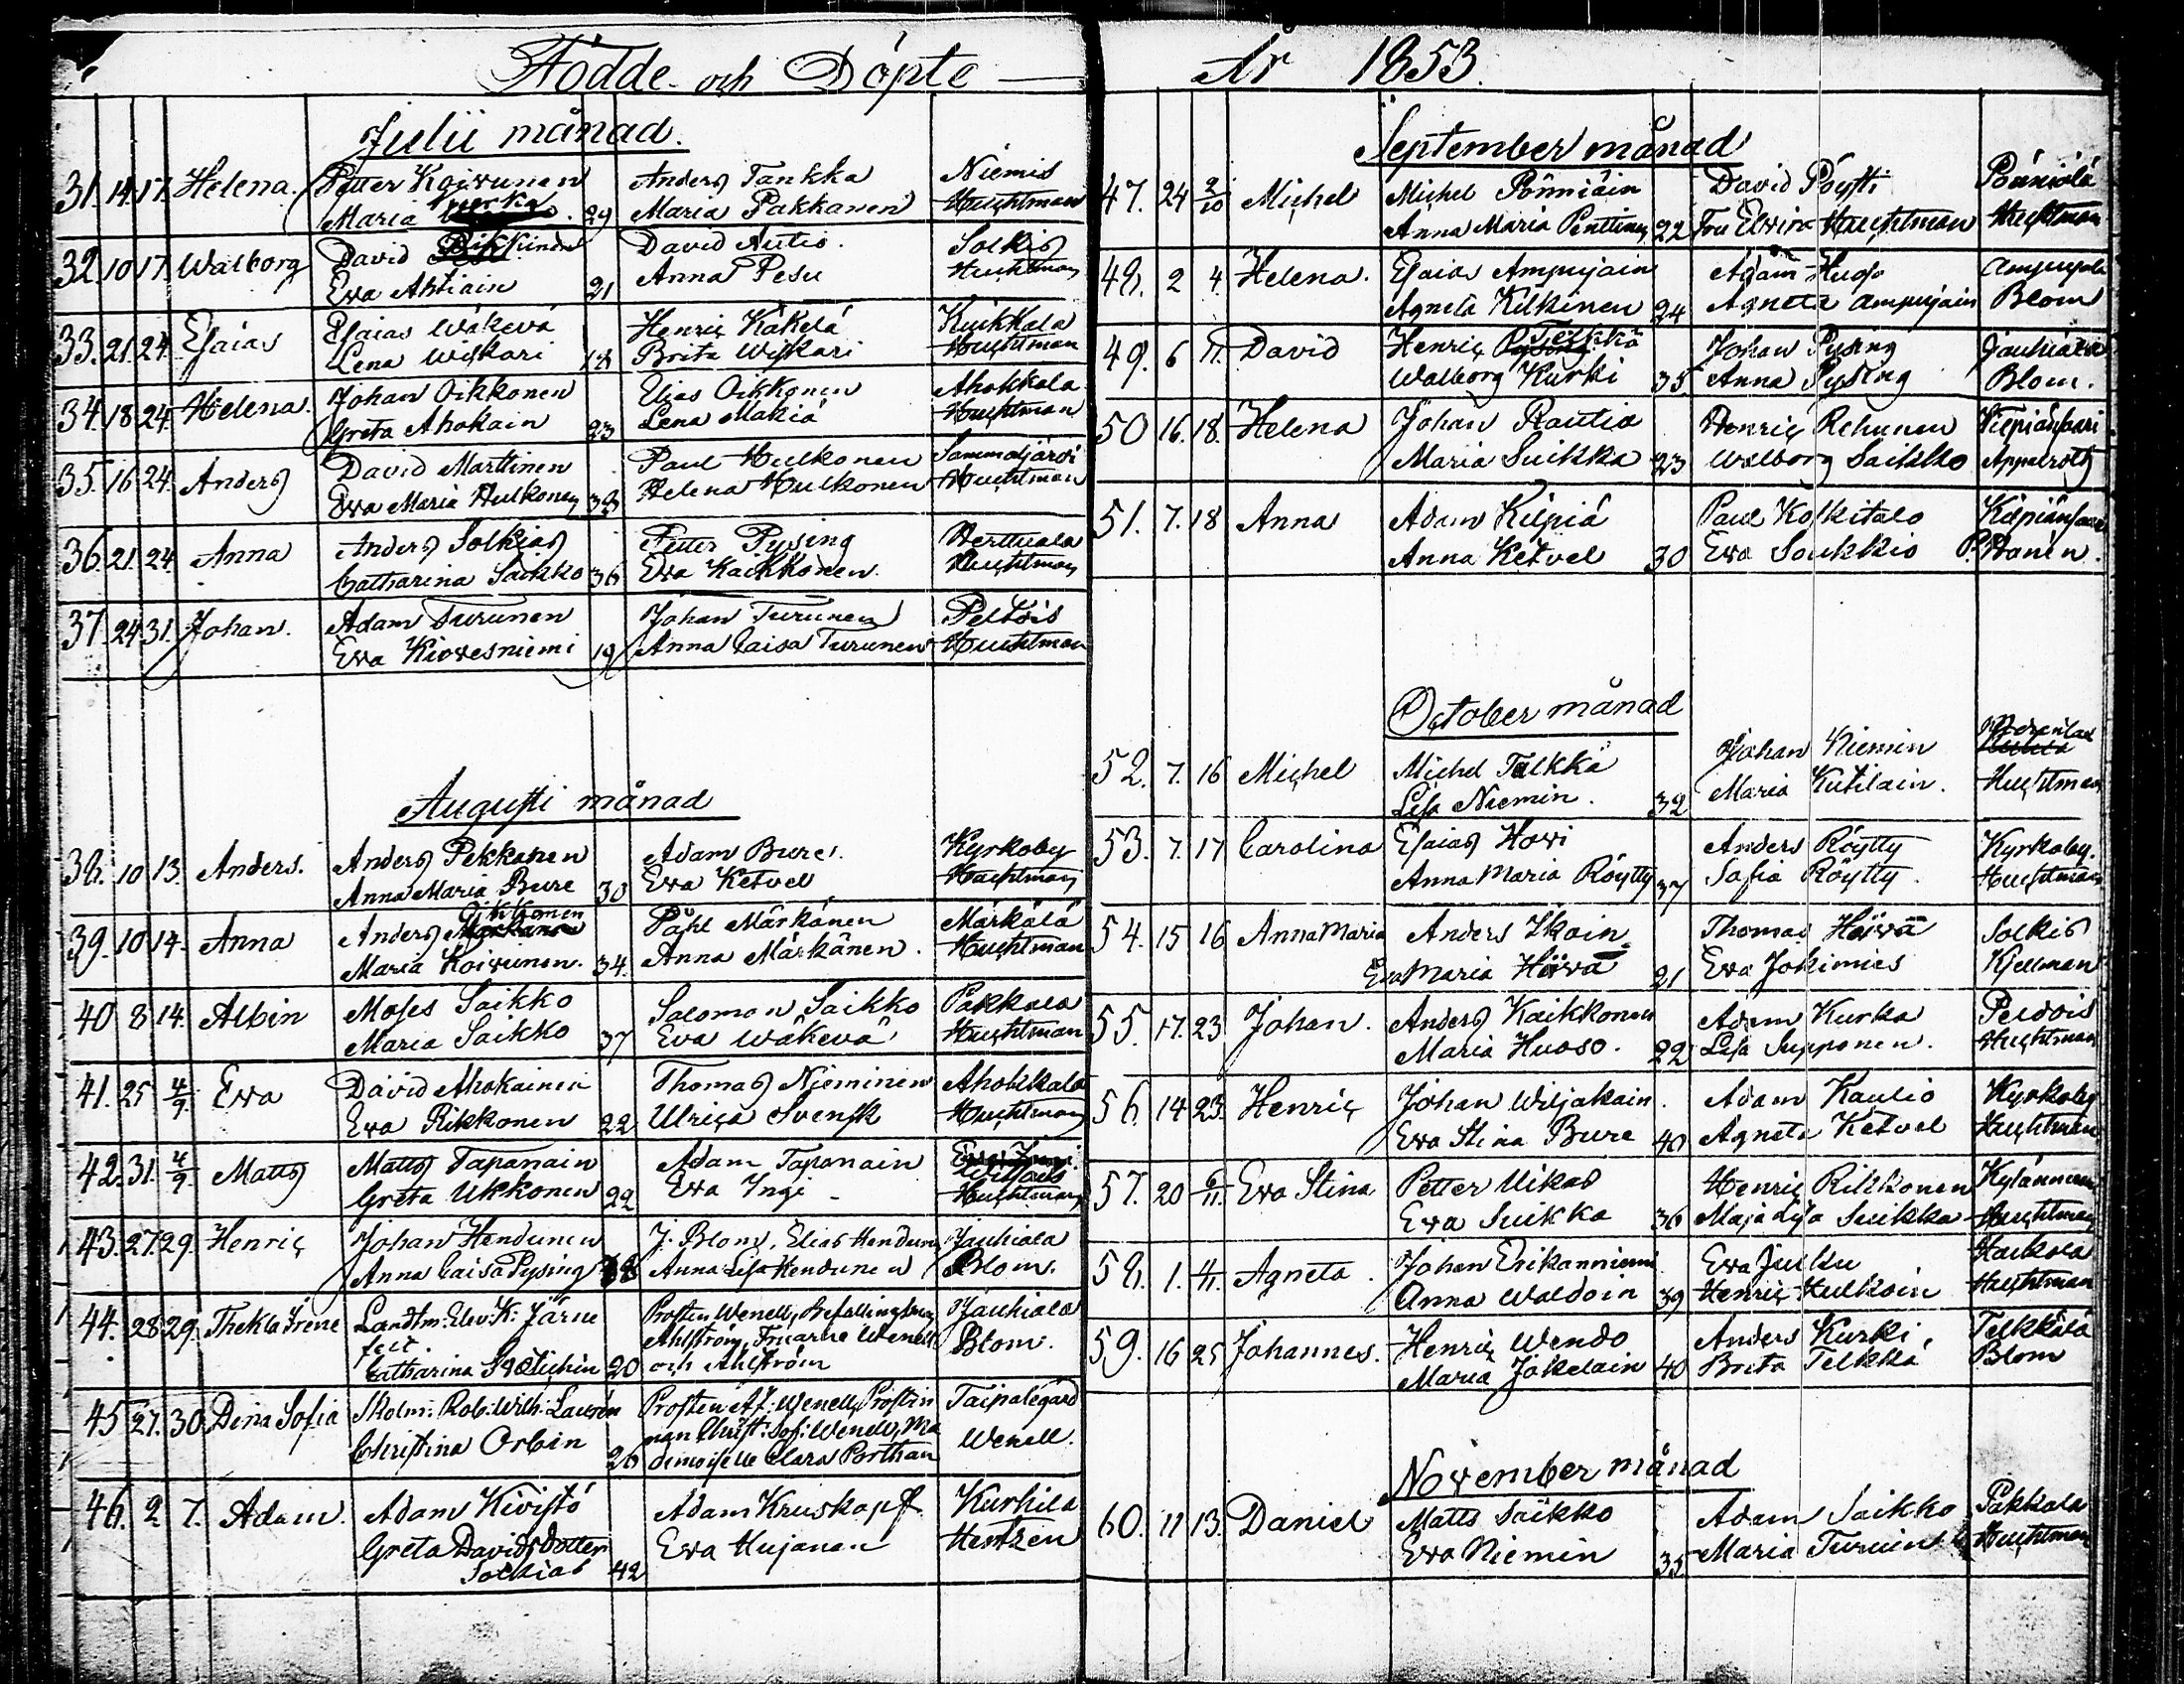 Födde och Döpte
Julii månad.
31. 14. 17. Helena. Petter Koivunen Anders Tankka Niemis
Maria Kurka 29 Maria Pakkanen Huchtman
32. 10 17. Walborg David Rikkinen David Autio. Solkis
Eva Ahtiain 21 Anna Pesu Huchtman
33. 21. 24. Esaias Esaias Wäkevä Henric Käkelä Kuikkala
Lena Wiskari 18 Brita Wiskari Huchtman
34. 18 24. Helena. Johan Oikkonen Elias Oikkonen Ahokkala
Greta Ahokain 23 Lena Makiä Huchtman
35. 16 24. Anders David Marttinen Paul Hulkonen Sammaljärvi
Eva Maria Hulkonen 33 Helena Hulkonen Huchtman
36. 21. 24. Anna Anders Solkias Petter Pysing Perttuala
Catharina Saikko 36 Eva Kaikkonen. Huchtman
37. 24 31. Johan. Adam Turunen Johan Turunen Peltois
Eva Kiovesniemi 19 Anna Caisa Turunen Huchtman
Augusti månad
38. 10 13. Anders. Anders Pekkanen Adam Bure. Kyrkoby
Anna Maria Bure 30 Eva Ketvel Huchtman
39. 10 14. Anna Anders Oikkonen Påhl Märkänen Märkälä
Maria Koivunen. 34. Anna Märkänen. Huchtman
40 8 14. Albin Moses Saikko Salomon Saikko Pakkala
Maria Saikko 37 Eva Wäkevä Huchtman
41. 25 4/9. Eva David Ahokainen Thomas Nieminen Ahokkala
Eva Rikkonen 22 Ulrica Svensk Huchtman
42. 31. 4/9. Matts Matts Taponain Adam Taponain
Greta Ukkonen 22 Eva Yngi Huchtman
43. 27. 29. Henric Johan Hendunen J. Blom, Elias Hendunen Jauhiala
Anna Caisa Pysing Anna Lisa Hendunen Blom.
44. 28 29. Thekla Irene Landtm: Elev: K: Järne Prosten Wenell, Befallningsman Jauhiala
felt. Ahlström, Fruarne Wenell Blom.
Catharina 20 och Ahlström
45 27. 30. Dina Sofia Skolm: Rob: Wilh: Laurén Prosten Af: Wenell, Prostin Taipalegård
Christina Orbin 26 nan Christ: Sof: Wenell, Ma Wenell.
dmoiselle Clara Porthan
46. 2 7. Adam. Adam Kivistö Adam Kruskopf Kurhila
Greta Davidsdotter Eva Hujanen Hentzen
Solkias 42
År 1853.
September månad
47. 24 2/10 Michel Michel Pönniäin David Pöytti Pönniölä
Anna Maria Penttinen 22 Fru Elvira Huchtman Huchtman
48. 2 4. Helena. Esaias Ampujain Adam Huoso Ampujala
Agneta Kilkinen 24 Agneta Ampujain Blom
49. 6 11. David Henric Telkkä Johan Pysing Jauhiala
Walborg Kurki 35 Anna Pysing Blom.
50 16. 18. Helena Johan Rautio Henric Rehunen Kilpiänsaari
Maria Suikka 23 Walborg Saikko Appelroth
51. 7. 18 Anna Adam Kilpiä Paul Koskitalo Kilpiänsaari
Anna Ketvel 30 Eva Soukkio P. Hanén.
October månad
52. 7. 16 Michel Michel Talkkä Johan Niemin
Lisa Niemin. 32 Maria Kutilain. Huchtman
53. 7. 17 Carolina Esaias Hovi Anders Röytty Kyrkoby.
Anna Maria Röytty 37 Sofia Röytty. Huchtman
54. 15 16 Anna Maria Anders Ikoin Thomas Hörvä Solkis
Eva Maria Hörvä 21 Eva Jokimies Kjellman
55. 17. 23. Johan. Anders Kaikkonen Adam Kurka Peldois
Maria Huoso. 22 Lisa Supponen. Huchtman
56. 14 23. Henric Johan Wiljakain. Adam Kaulio Kyrkoby
Eva Stina Bure 40 Agneta Ketvel Huchtman
57. 20 6/11. Eva Stina Petter Uikas Henric Rikkonen
Eva Suikka 36 Maja Lisa Suikka Huchtman
58. 1. Agneta. Johan Erikanniemi. Eva Junku Haikola
Anna Waldoin 39 Henric Hulkoin Huchtman
59. 16 25 Johannes. Henric Wendo Anders Kurki. Telkkälä
Maria Jokelain 40 Brita Telkkä Blom
November månad
60. 11 13. Daniel Matts Saikko Adam Saikko Pakkala
Eva Niemin 35 Maria Turuin Huchtman